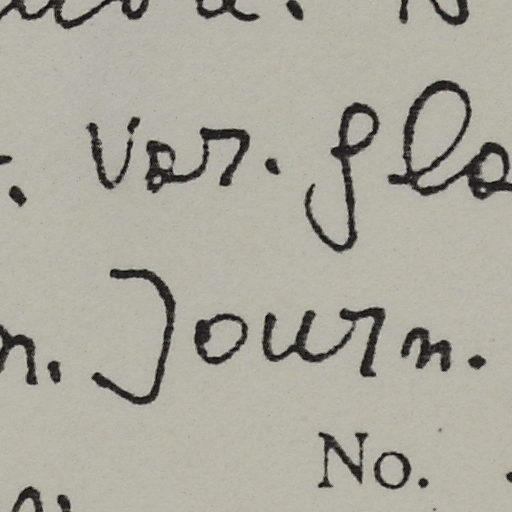 . var. gla
n. Journ.
No.